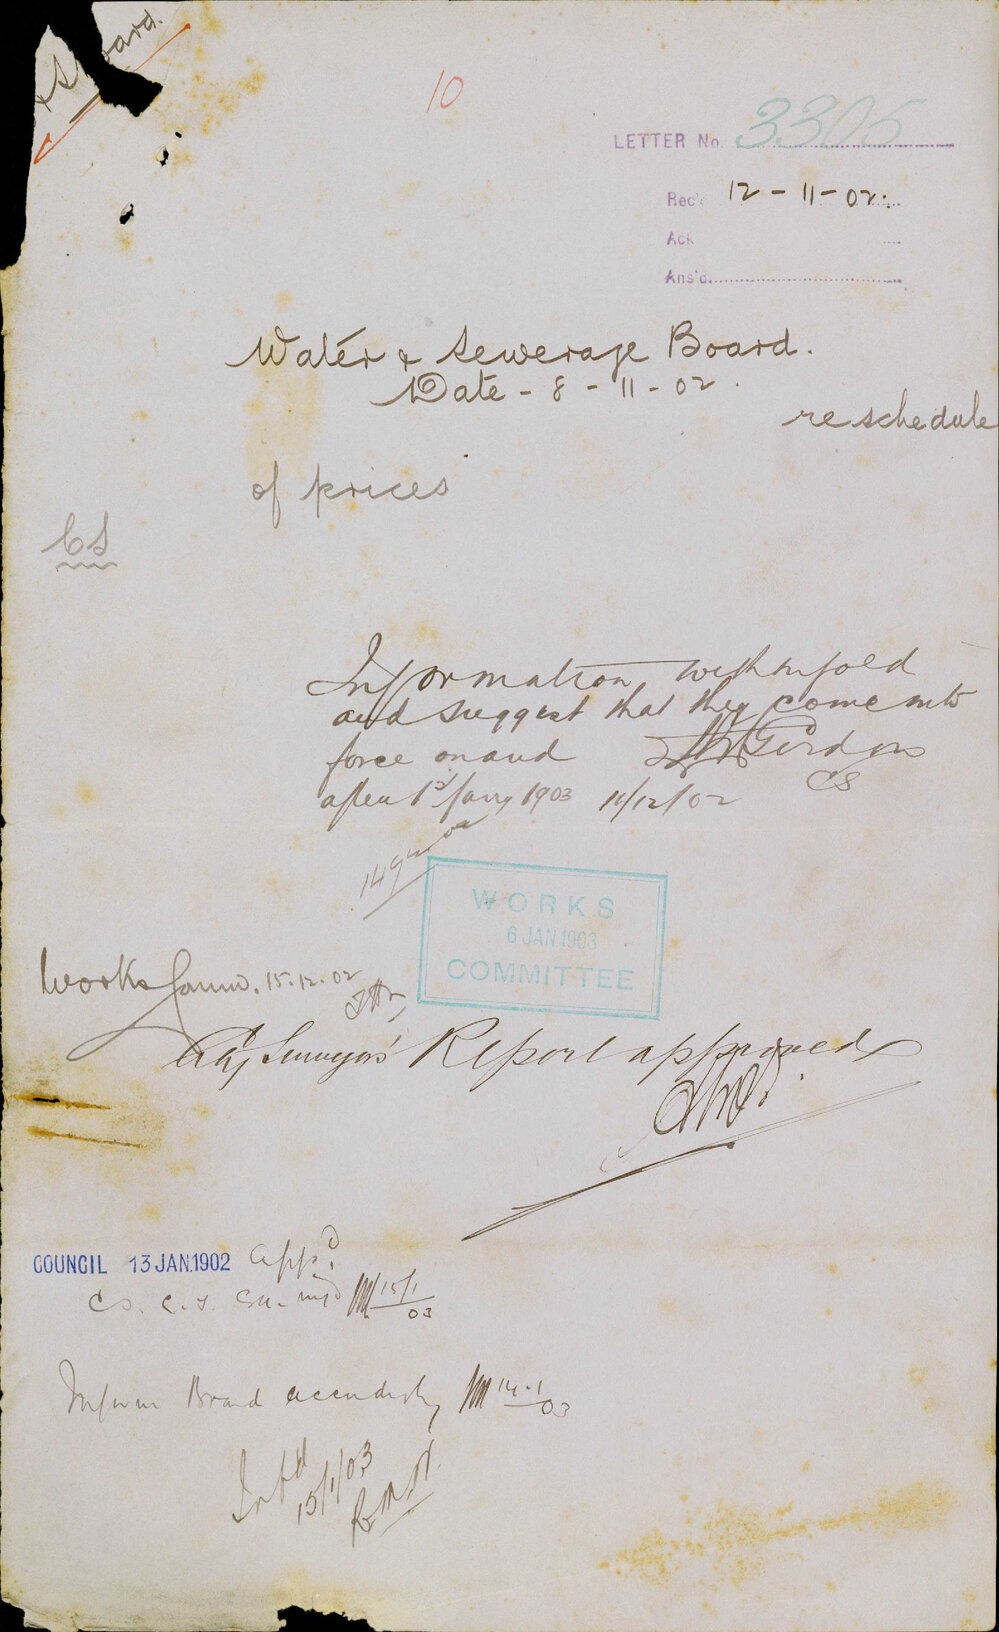 oard.
10
LETTER No. 3305
Rec'd 12-11-02.
Ack
Ans'd.
Water & Sewerage Board.
Date - 8 - 11 - 02.
re schedule
of prices
CS
Information withinfold
and suggest that they come into
force on and
after 1st Jany 1903 11/12/02
Gordon
CS
WORKS
6 JAN 1903
COMMITTEE
Works Comm. 15.12.02
City Surveyors' Report approved
COUNCIL 13 JAN.1902 app'd.
15/1/03
Inform Board accordingly 14.1/03
15/1/03